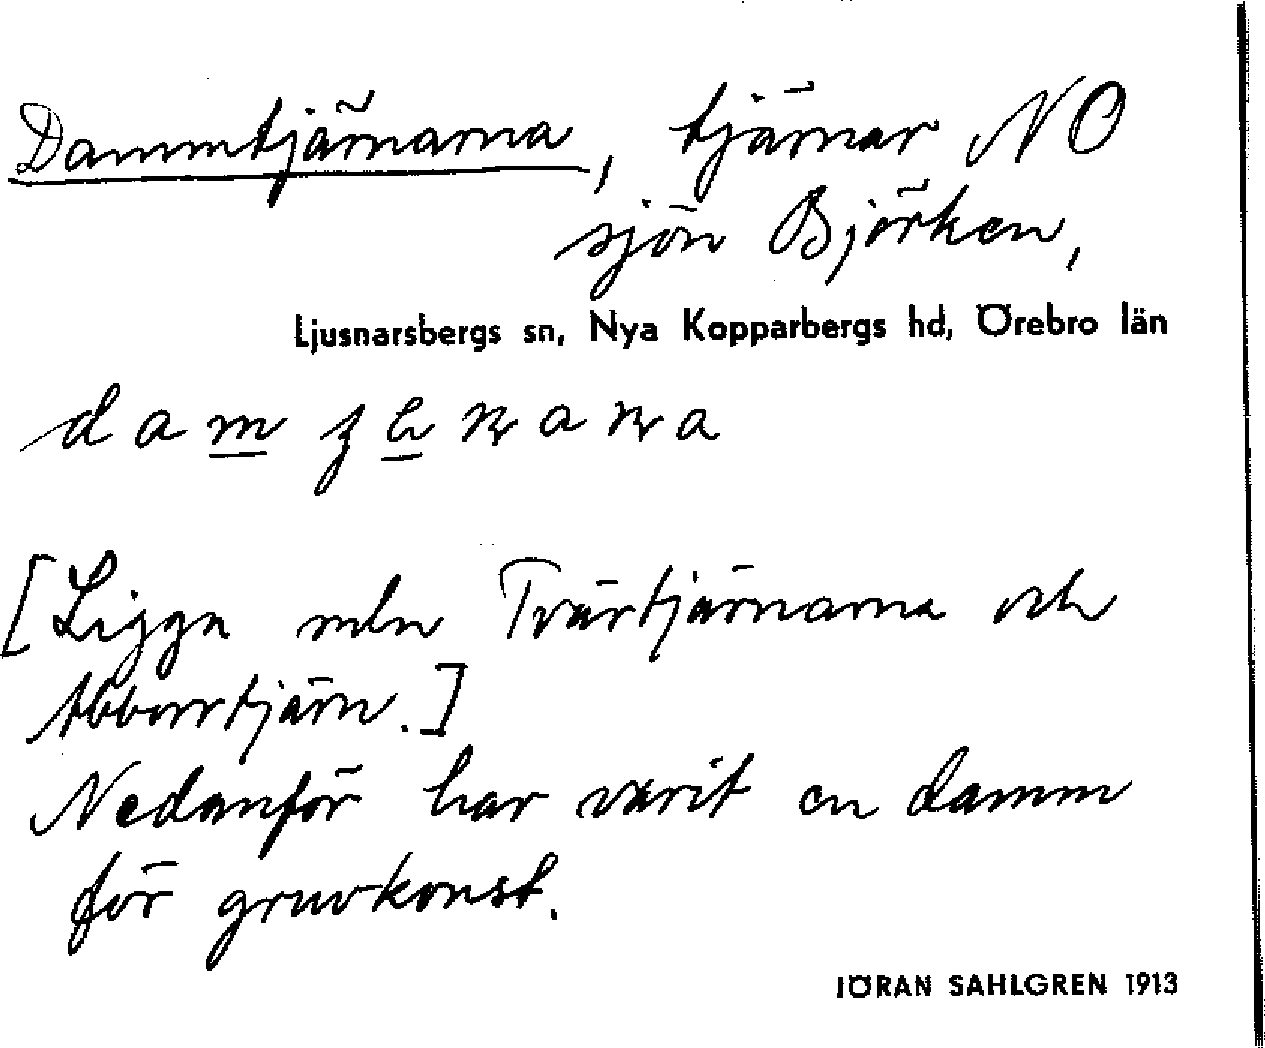 Dammtjärnarna, tjärnar NO
sjön Björken,
Ljusnarsbergs sn, Nya Kopparbergs hd, Örebro län
[Ligga mln Tvärtjärnarna och
Abborrtjärn.]
Nedanför har varit en damm
för gruvkonst.
JÖRAN SAHLGREN 1913